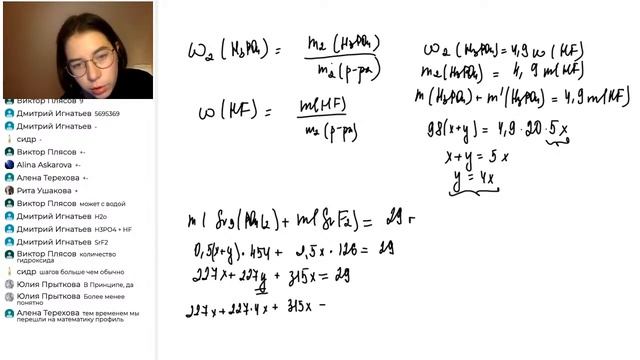 Виктор Плясов 9
Дмитрий Игнатьев 5695369
Дмитрий Игнатьев -
сидр -
Виктор Плясов +-
Alina Askarova +-
Алена Терехова +-
Рита Ушакова +
Дмитрий Игнатьев +-
Виктор Плясов может с водой
Дмитрий Игнатьев H2o
Дмитрий Игнатьев H3PO4 + HF
Дмитрий Игнатьев SrF2
Виктор Плясов количество
гидроксида
сидр шагов больше чем обычно
Юлия Прыткова В Принципе, да
Юлия Прыткова Более менее
понятно
Алена Терехова тем временем мы
перешли на математику профиль
ω2 (H3PO4) = m2 (H3PO4) / m2 (р-ра)
ω (HF) = m(HF) / m2 (р-ра)
ω2 (H3PO4) = 4,9 ω (HF)
m2 (H3PO4) = 4,9 m(HF)
m (H3PO4) + m'(H3PO4) = 4,9 m(HF)
98(x+y) = 4,9 · 20 · 5x
x+y = 5x
y = 4x
m ( Sr3(PO4)2) + m( SrF2) = 29 г
0,5(x+y) · 454 + 2,5x · 126 = 29
227x + 227y + 315x = 29
227x + 227·4x + 315x =